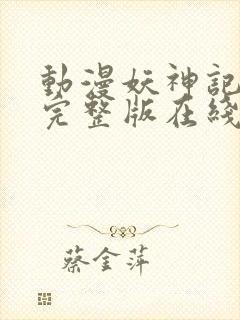 動漫妖神記
完整版在綫
蔡金萍